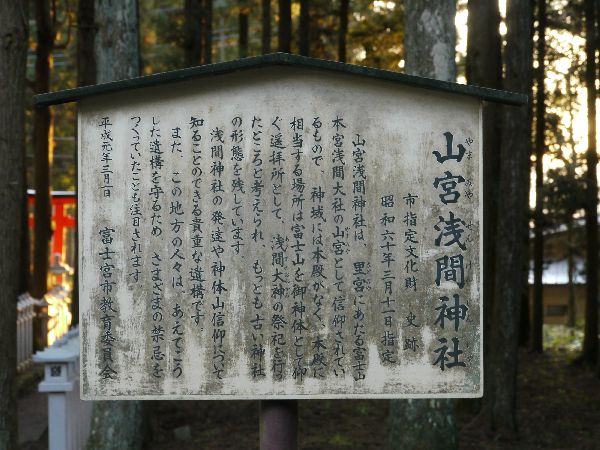 山宮浅間神社
市指定文化財 史跡
昭和六十年三月十一日指定
山宮浅間神社は、里宮にあたる富士山
本宮浅間大社の山宮として信仰されてい
るもので、神域には本殿がなく、本殿に
相当する場所は富士山を御神体として仰
ぐ遥拝所として、浅間大神の祭祀を行っ
たところと考えられ、もっとも古い神社
の形態を残しています。
浅間神社の発達や神体山信仰について
知ることのできる貴重な遺構です。
また、この地方の人々は、あえてこう
した遺構を守るため、さまざまの禁忌を
つくっていたことも注目されます。
平成元年三月一日
富士宮市教育委員会